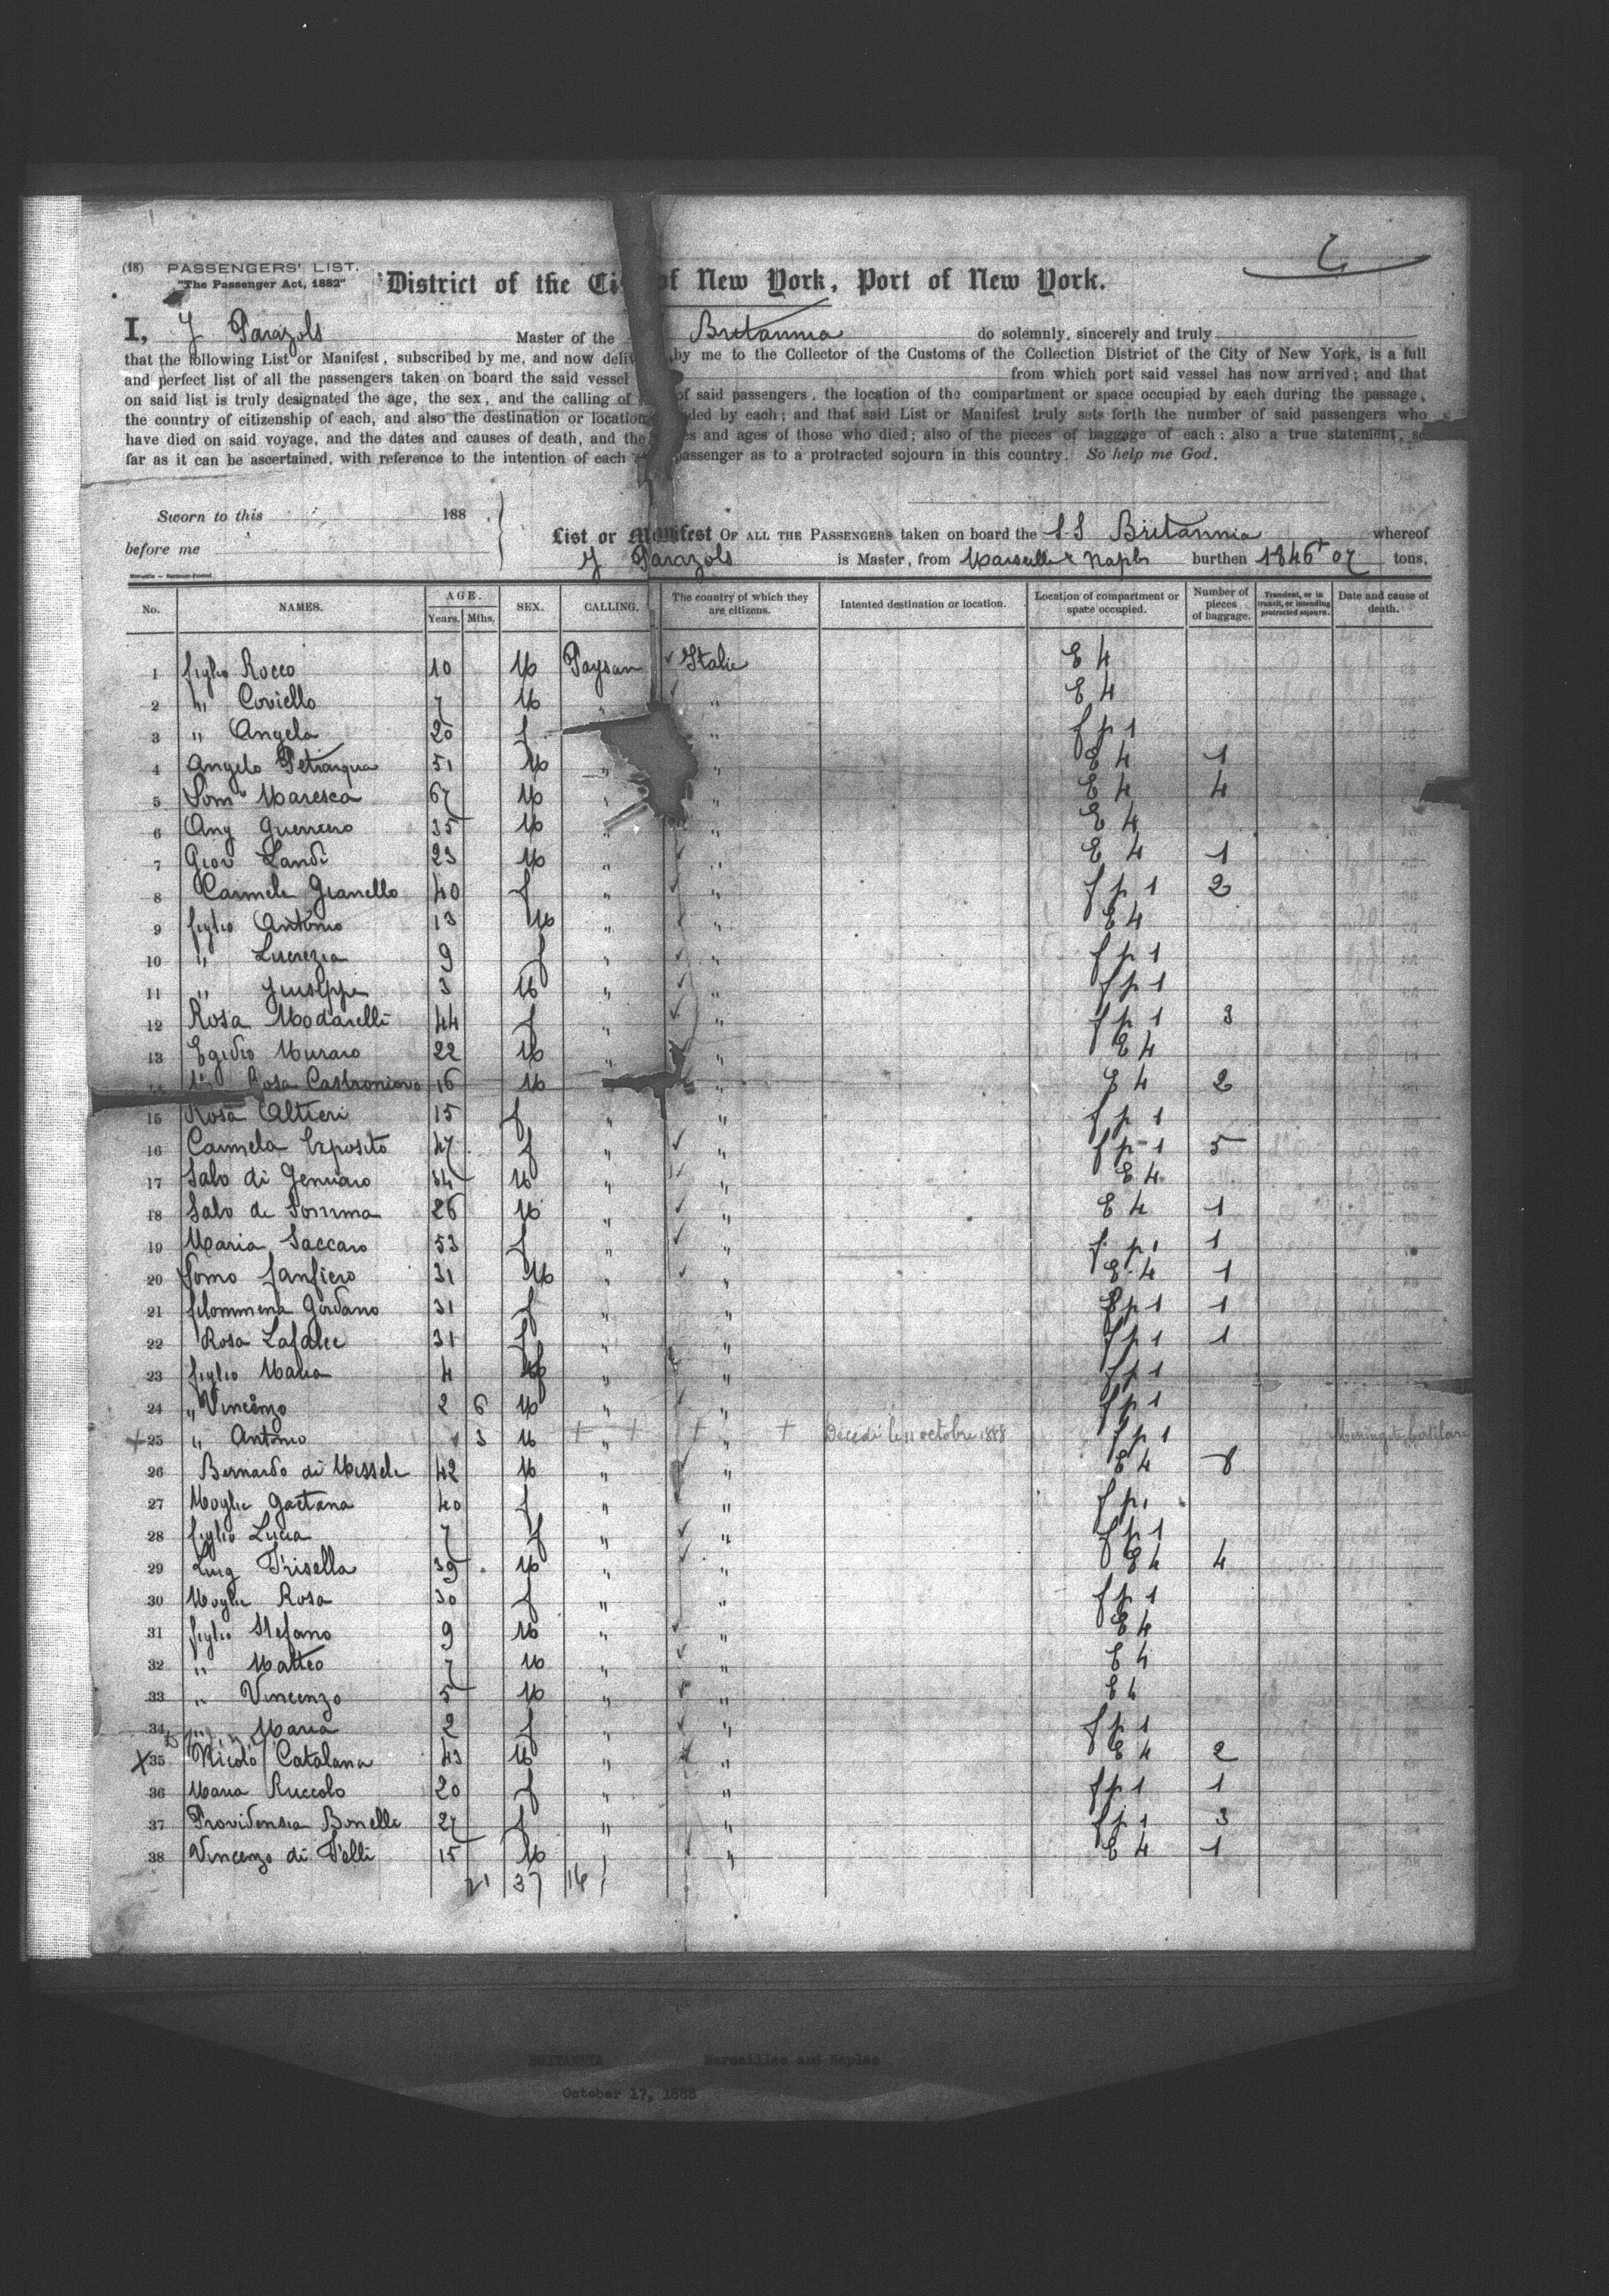 (18) PASSENGERS' LIST.
"The Passenger Act, 1882"
District of the Ci of New York, Port of New York.
I, J Parazols Master of the Britannia do solemnly, sincerely and truly
that the following List or Manifest, subscribed by me, and now deliv by me to the Collector of the Customs of the Collection District of the City of New York, is a full
and perfect list of all the passengers taken on board the said vessel from which port said vessel has now arrived; and that
on said list is truly designated the age, the sex, and the calling of of said passengers, the location of the compartment or space occupied by each during the passage,
the country of citizenship of each, and also the destination or location ded by each; and that said List or Manifest truly sets forth the number of said passengers who
have died on said voyage, and the dates and causes of death, and the es and ages of those who died; also of the pieces of baggage of each: also a true statement, so
far as it can be ascertained, with reference to the intention of each passenger as to a protracted sojourn in this country. So help me God.
Sworn to this 188 .
before me
List or Manifest OF ALL THE PASSENGERS taken on board the SS Britannia whereof
J Parazols is Master, from Marseille & Naples burthen 1846 07 tons,
No. NAMES. AGE. Years. Mths. SEX. CALLING. The country of which they are citizens. Intented destination or location. Location of compartment or space occupied. Number of pieces of baggage. Transient, or in transit, or intending protracted sojourn. Date and cause of death.
1 figlio Rocco 10 M Paysan Italie E 4
2 " Coviello 7 M " E 4
3 " Angela 20 f " f p 1
4 Angelo Petrarqua 51 M " " E 4 1
5 Dom Maresca 67 M " " E 4 4
6 Ang Guerrero 35 M " " E 4
7 Giov Landi 23 M " " E 4 1
8 Carmela Gianello 40 f " " f p 1 2
9 figlio Antonio 13 M " " E 4
10 " Lucrezia 9 f " " f p 1
11 " Giuseppe 3 M " " f p 1
12 Rosa Modarelli 44 f " " f p 1 3
13 Egidio Muraro 22 M " " E 4
Rosa Castronuovo 16 M " E 4 2
15 Rosa Altieri 15 f " " f p 1
16 Carmela Esposito 47 f " " f p 1 5
17 Salv di Gennaro 34 M " " E 4
18 Salv di Somma 26 M " " E 4 1
19 Maria Saccaro 53 f " " f p 1 1
20 Domo Sanfiero 31 M " " E 4 1
21 filommena Giordano 31 f " " f p 1 1
22 Rosa Lafalce 31 f " " f p 1 1
23 figlio Maria 4 f " " f p 1
24 " Vincenzo 2 6 M " " f p 1
+ 25 " Antonio 3 M " + + + " + Décédé le 11 octobre 1888 f p 1 Méningite
26 Bernardo di Missele 42 M " " E 4 8
27 Moglie Gaetana 40 f " " f p 1
28 figlio Lucia 7 f " " f p 1
29 Luig Trisella 39 M " " E 4 4
30 Moglie Rosa 30 f " " f p 1
31 figlio Stefano 9 M " " E 4
32 " Matteo 7 M " " E 4
33 " Vincenzo 5 M " " E 4
34 " Maria 2 f " " f p 1
X 35 Nicolo Catalana 43 M " " E 4 2
36 Maria Ruccolo 20 f " " f p 1 1
37 Providensia Bonelli 27 f " " f p 1 3
38 Vincenzo di Pelli 15 M " " E 4 1
21 37 16
BRITANNIA Marseilles and Naples
October 17, 1888